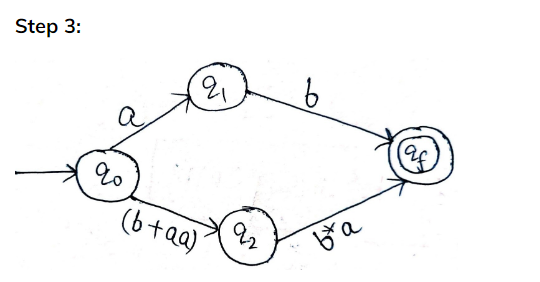 Step 3:
q₁
b
a
qf
q₀
(b+aa)
q₂
b*a